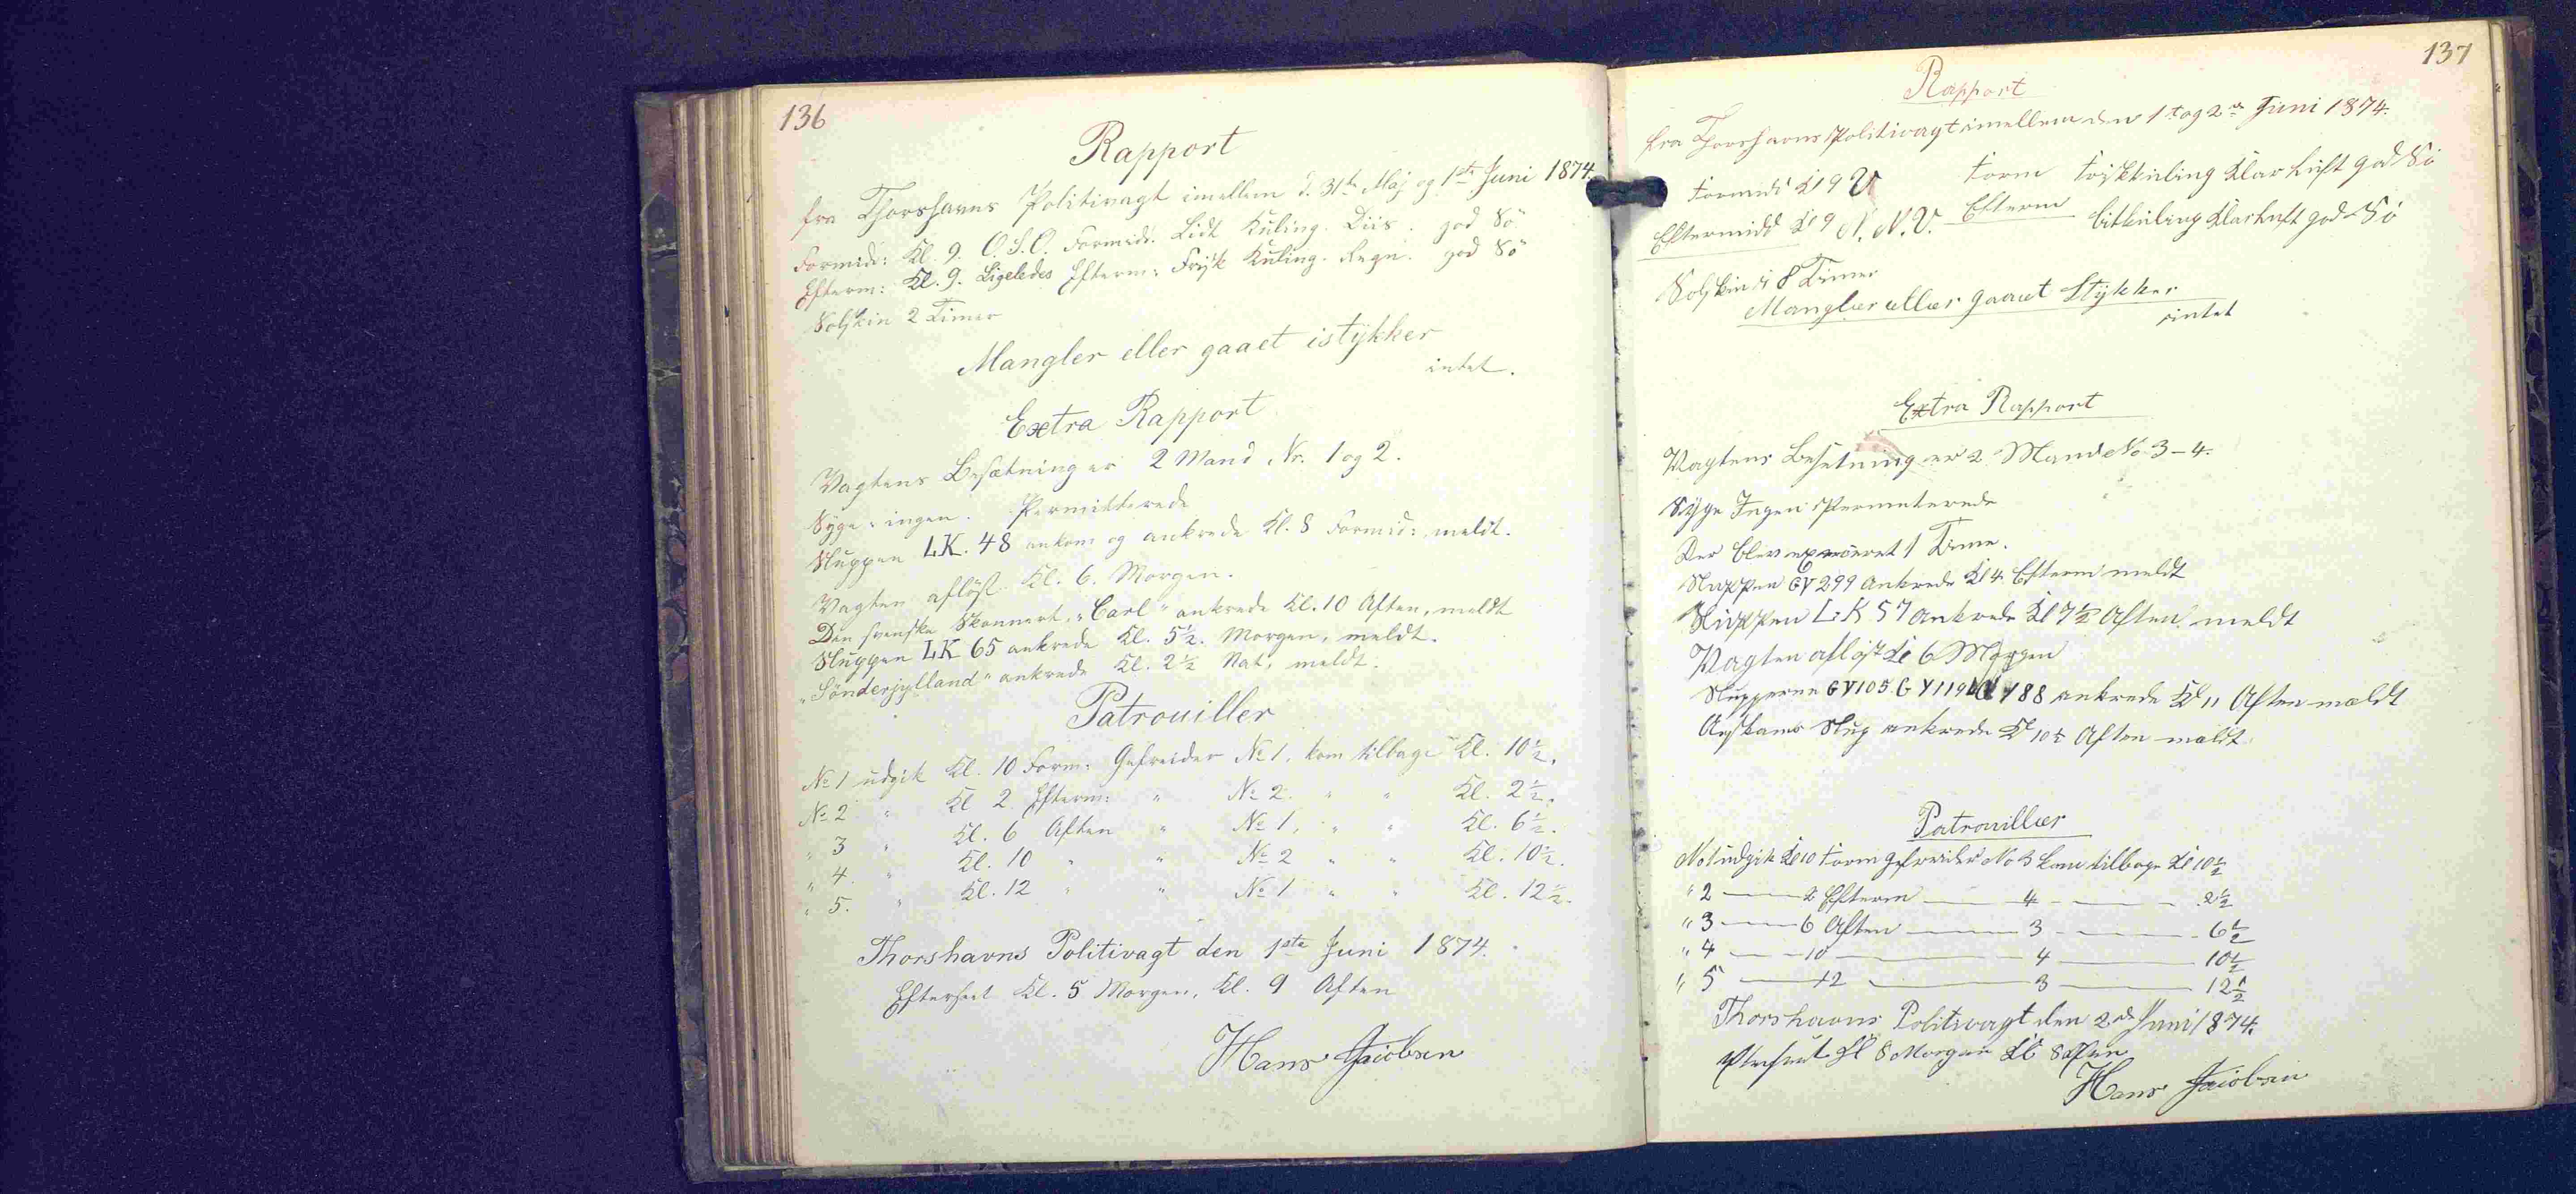 136
Rapport
fra Thorshavns Politivagt imellem d. 31te Maj og 1ste Juni 1874.
Formidd: Kl. 9. O.S.O. Formidd. Lidt Kuling. Diis. god Sö
Efterm: Kl. 9. Ligeledes Efterm: Frisk Kuling. Regn. god Sö
Solskin 2 Timer
Mangler eller gaaet istykker
intet.
Extra Rapport
Vagtens Besætning er 2 Mand Nr. 1 og 2.
Syge: ingen. Permitterede
Sluppen LK. 48 ankom og ankrede Kl. 8 Formid: meldt.
Vagten aflöst Kl. 6. Morgen.
Den svenske Skonnert "Carl" ankrede Kl. 10 Aften, meldt
Sluppen LK 65 ankrede Kl. 5½. Morgen, meldt.
"Sönderjylland" ankrede Kl. 2½ Nat, meldt.
Patrouiller
No 1 udgik Kl. 10 Form: Gefreider No 1, kom tilbage Kl. 10½.
No 2 " Kl 2 Efterm: " No 2. " " Kl. 2½.
" 3 " Kl. 6 Aften " No 1, " " Kl. 6½.
" 4. " Kl. 10 " " No 2 " " Kl. 10½.
" 5. " Kl. 12 " " No 1 " " Kl. 12½.
Thorshavns Politivagt den 1ste Juni 1874.
Efterseet Kl. 5 Morgen, Kl. 9 Aften
Hans Jacobsen
137
Rapport
fra Thorshavns Politivagt imellem den 1t og 2n Juni 1874.
Formidd Kl 9 V Form Friskkuling Klar Luft god Sö
Eftermidd Kl 9 N.V. Efterm Kuling Klar Luft god Sö
Solskin i 8 Timer
Mangler eller gaaet Stykker
intet
Extra Rapport
Vagtens Besetning er 2 Mand No 3-4.
Syge Ingen Permeterede
Der blev exerceret 1 Time.
Sluppen GV 299 ankrede Kl 4 Efterm meldt
Sluppen LK 57 ankrede Kl 7½ Aften meldt
Vagten aflöst Kl 6 Morgen
Slupperne GV105 GV119 188 ankrede Kl 11 Aften meldt
Slup ankrede Kl 10½ Aften meldt
Patrouiller
No 1 udgik Kl 10 Form gefreider No 3 kom tilbage Kl 10½
" 2 — 2 Efterm — 4 — 2½
" 3 — 6 Aften — 3 — 6½
" 4 — 10 — 4 — 10½
" 5 — 12 — 3 — 12½
Thorshavns Politivagt den 2d Juni 1874.
Efterseet Kl 8 Morgen Kl 8 Aften
Hans Jacobsen